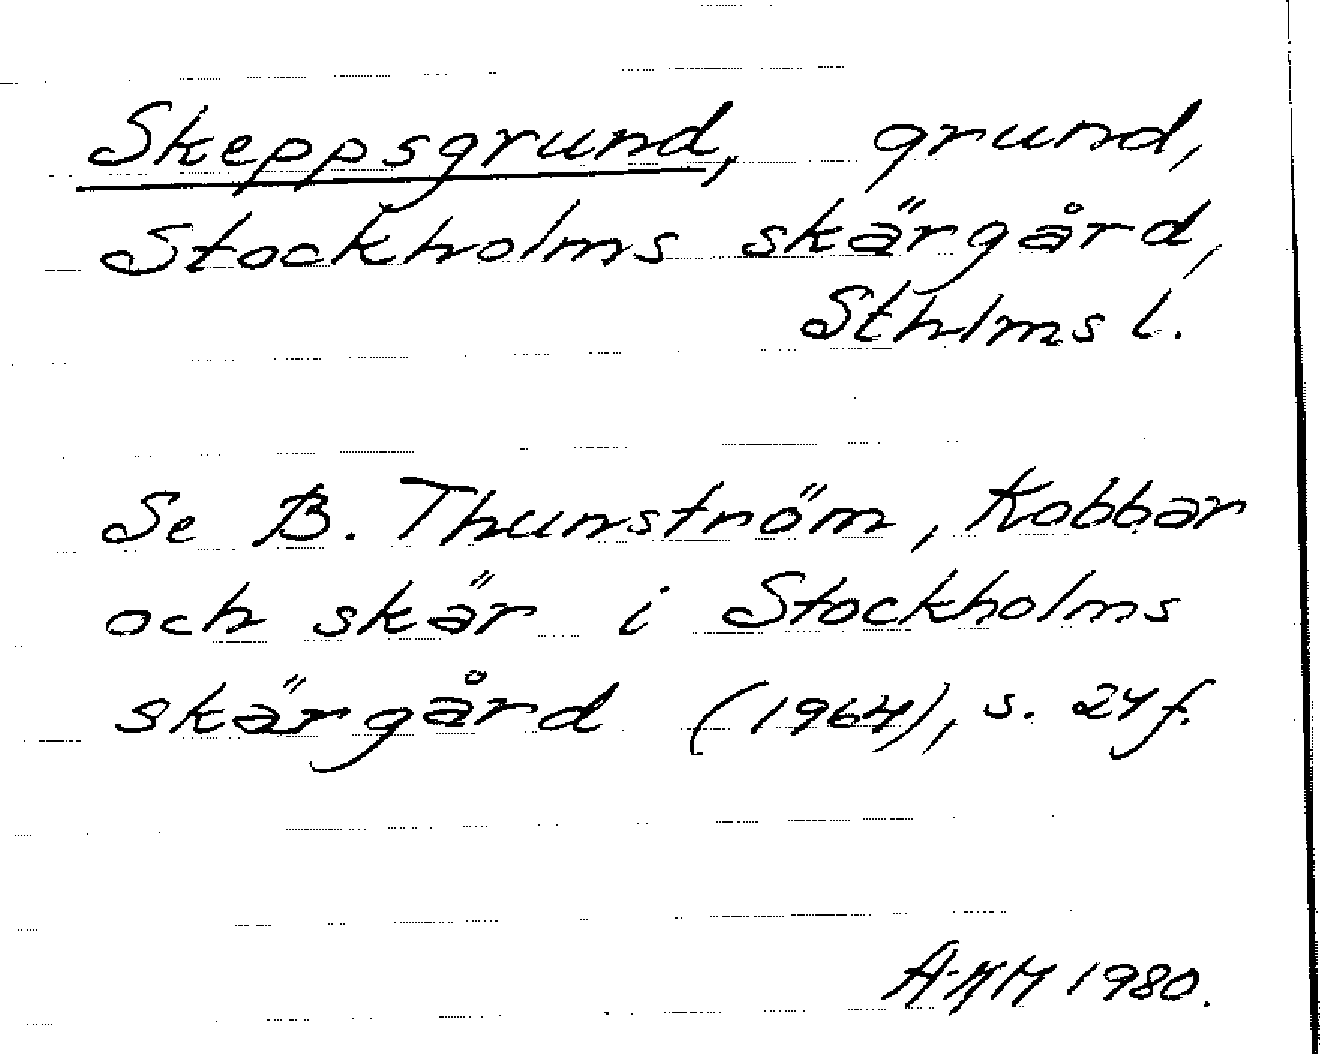 Skeppsgrund, grund,
Stockholms skärgård,
Sthlms l.
Se B. Thunström, Kobbar
och skär i Stockholms
skärgård (1964), s. 24 f.
1980.